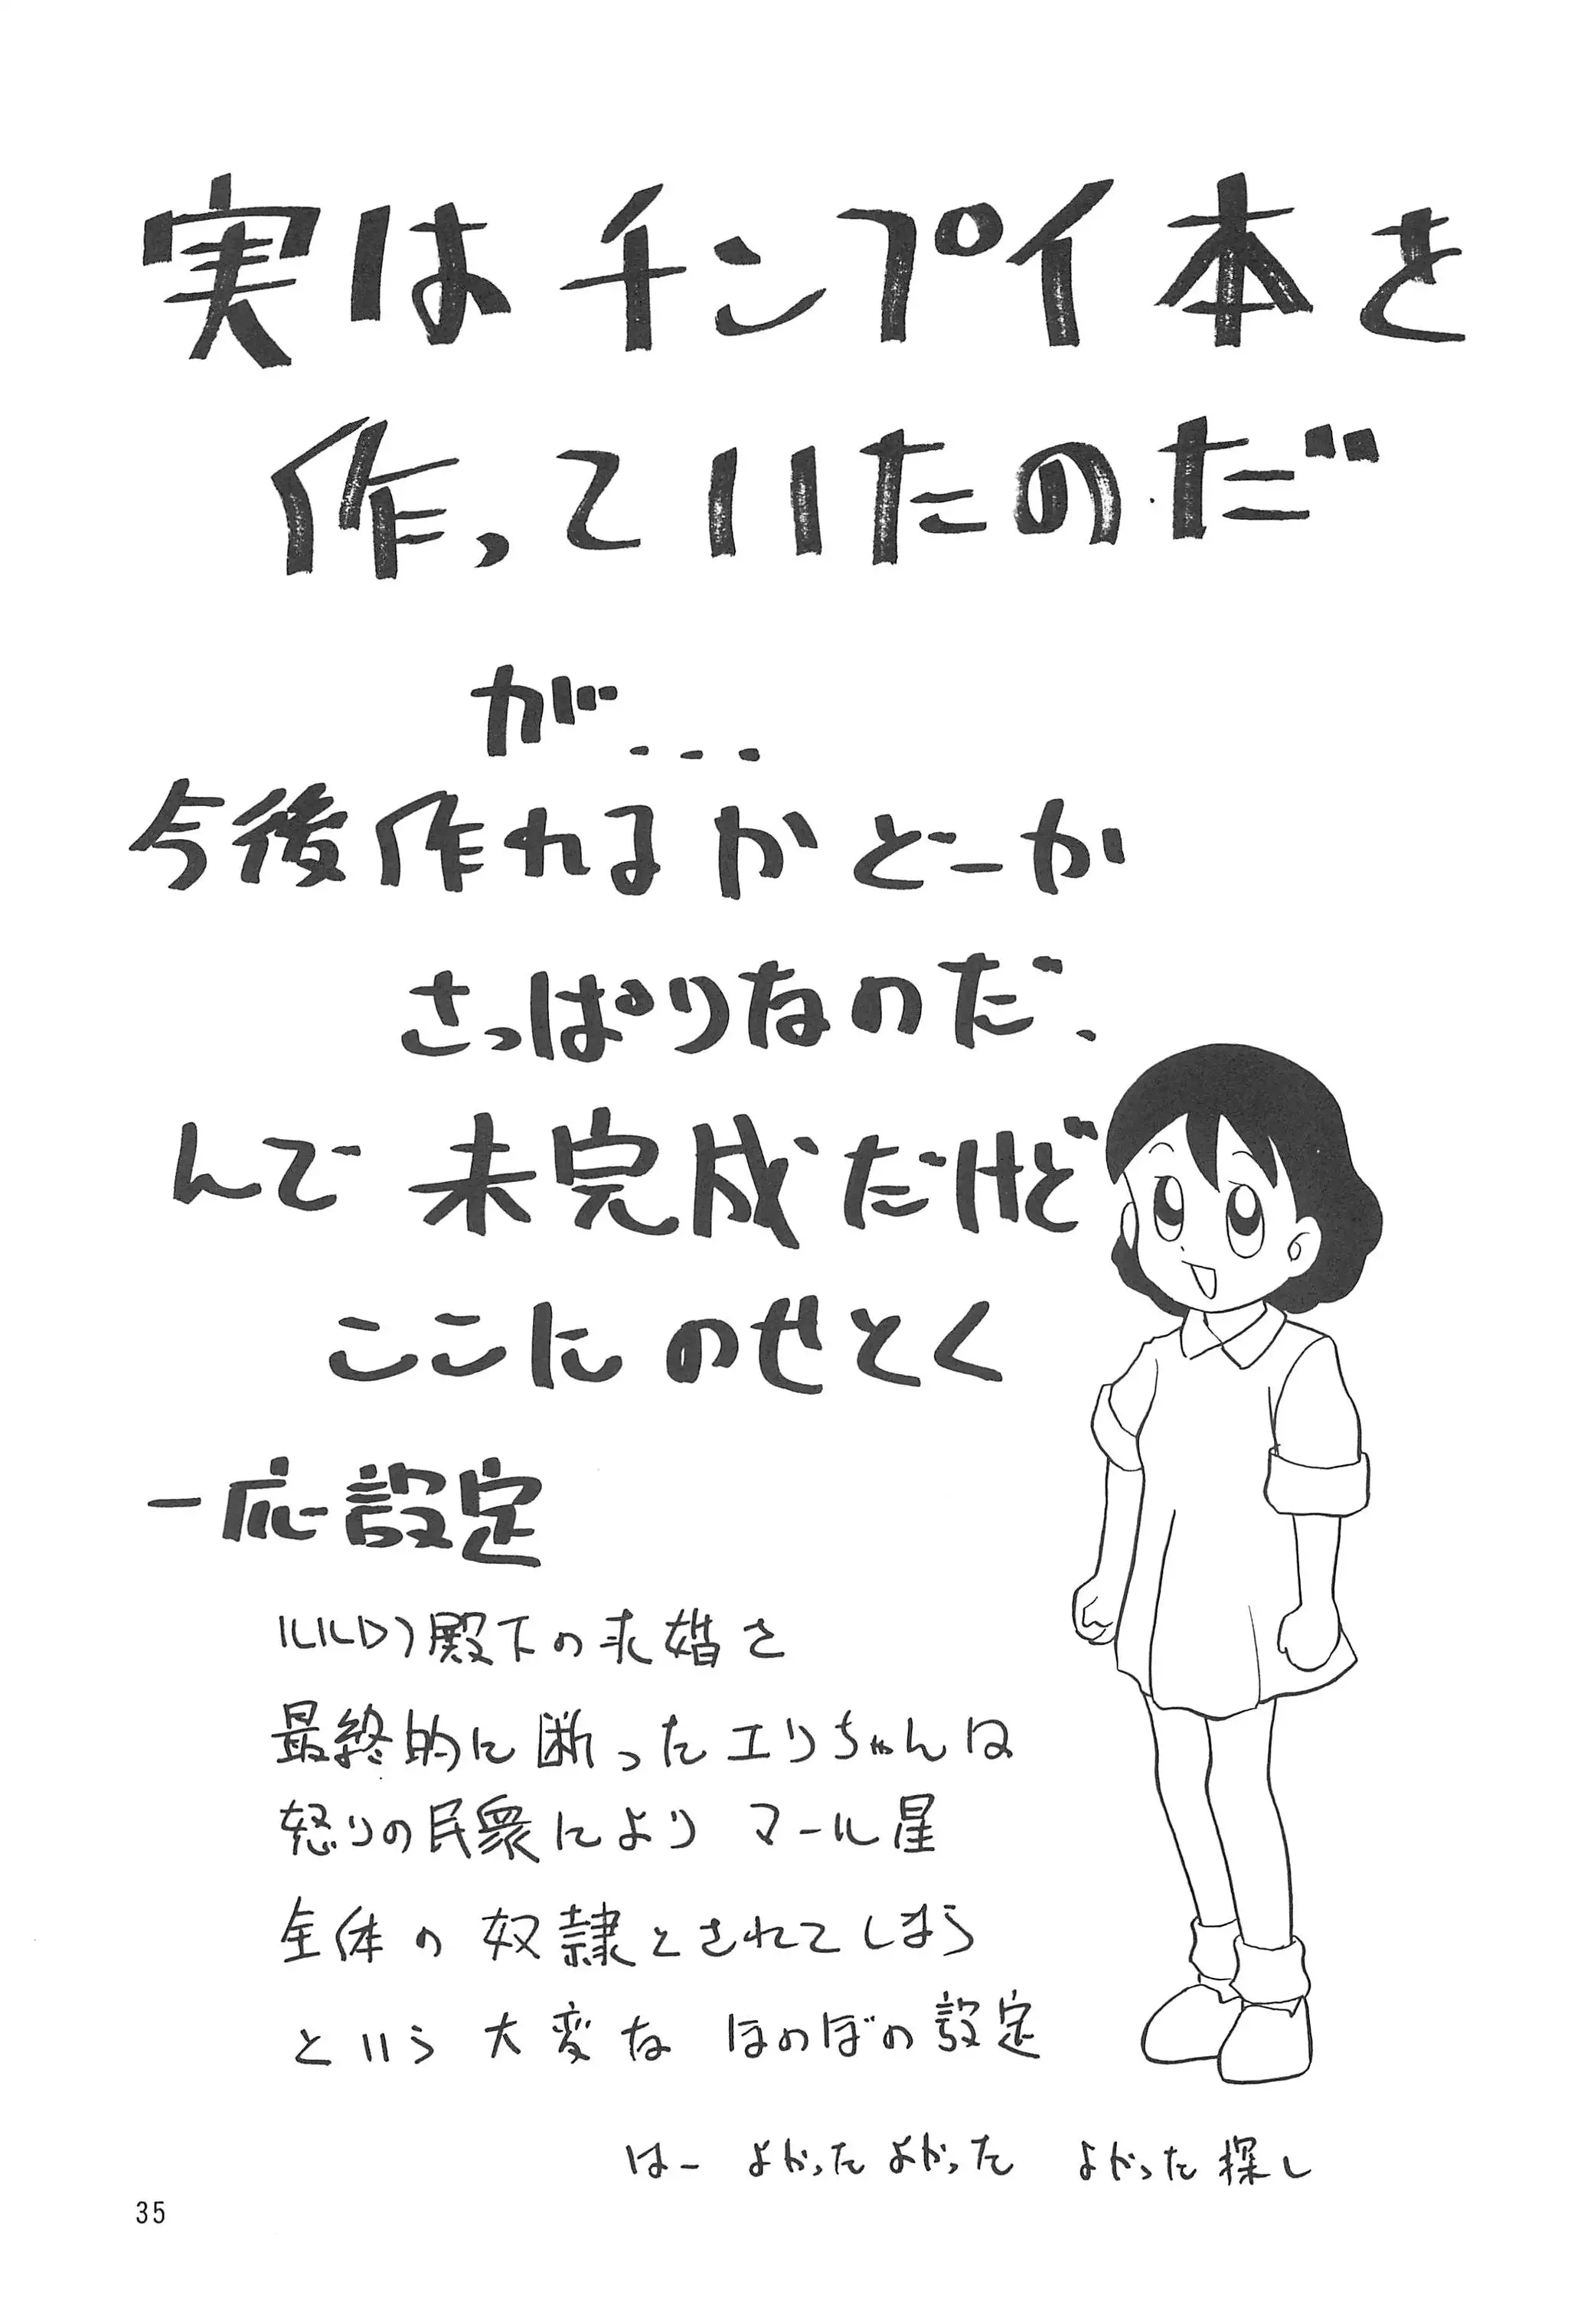 実はチンプイ本を
作っていたのだ
が...
今後作れるかどーか
さっぱりなのだ.
んで 未完成だけど
ここにのせとく
一応設定
ルルロフ殿下の求婚を
最終的に断ったエリちゃんは
怒りの民衆により マール星
全体の奴隷とされてしまう
という 大変な ほのぼの設定
はー よかったよかった よかった探し
35